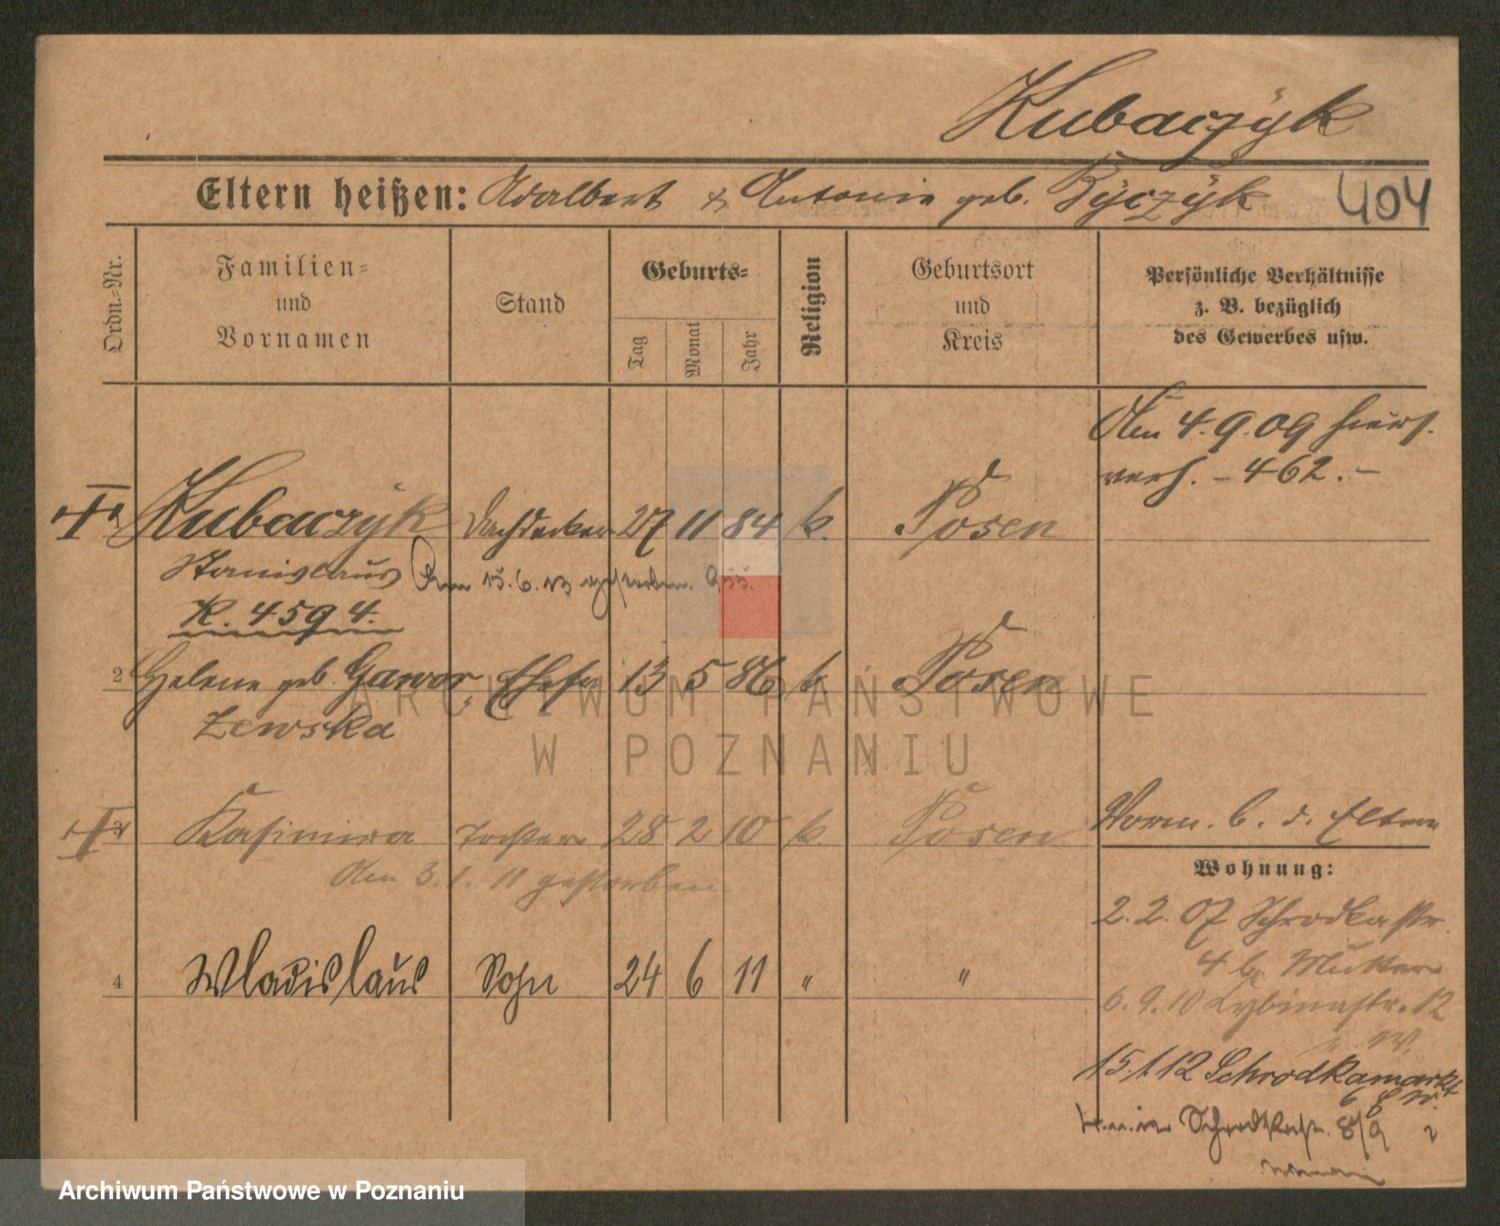 Kubaczÿk
Eltern heißen: Adalbert & Antonie geb. Byczÿk 404
Ordn.-Nr.
Familien-
und
Vornamen
Stand
Geburts-
Tag
Monat
Jahr
Religion
Geburtsort
und
Kreis
Persönliche Verhältnisse
z. B. bezüglich
des Gewerbes usw.
Am 4.9.09 hiers.
verh. - 462. -
Kubaczÿk Dachdecker 27 11 84 k. Posen
Stanislaus Am 15.6.13 gestorben. 955.
K. 4594.
2 Helene geb. Gawor Ehefr 13 5 86 k. Posen
zewska
3 Kasimira Tochter 28 2 10 k. Posen Vorm. b. d. Eltern
Am 3.1.11 gestorben
Wohnung:
2.2.07 Schrodkastr.
4 b. Mutter
4 Wladislaus Sohn 24 6 11 " "
6.9.10 Cybinastr. 12
15.1.12 Schrodkamarkt
6 b W.
Schrodkastr. 8/9
ARCHIWUM PAŃSTWOWE
W POZNANIU
Archiwum Państwowe w Poznaniu